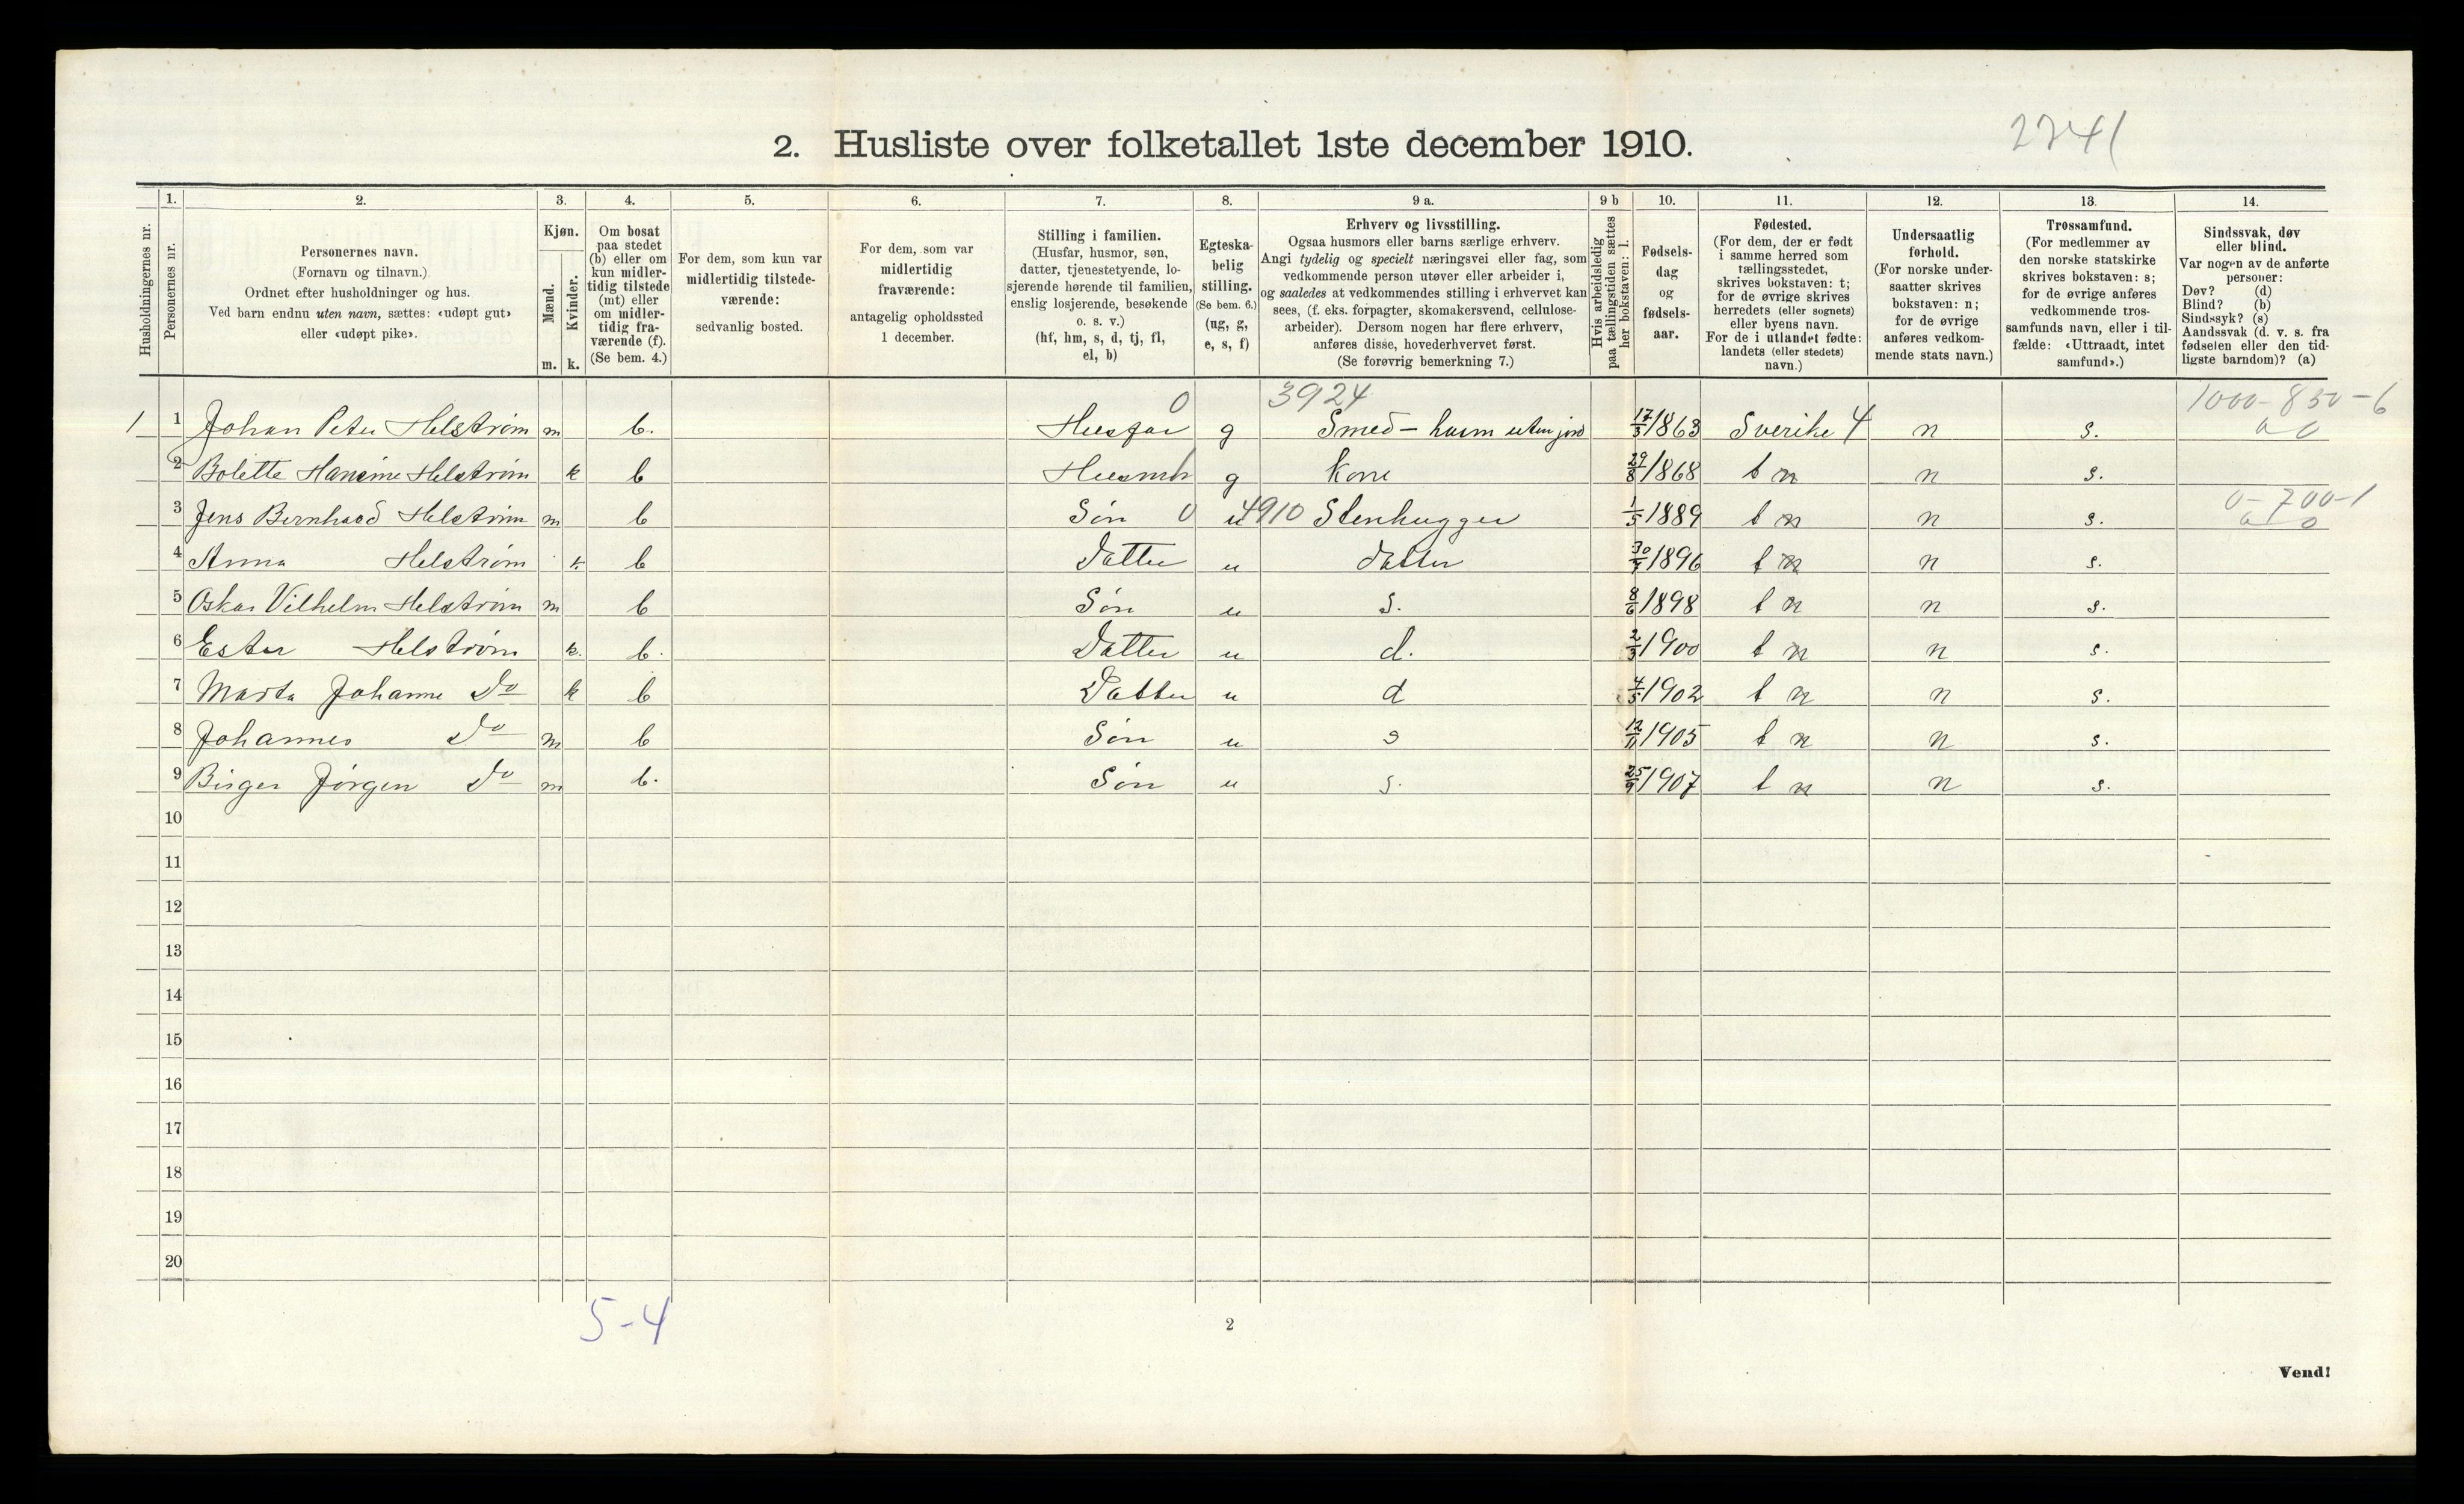 2. Husliste over folketallet 1ste december 1910.
2241
Husholdningernes nr.
1.
Personernes nr.
2.
Personernes navn.
(Fornavn og tilnavn.)
Ordnet efter husholdninger og hus.
Ved barn endnu uten navn, sættes: «udøpt gut»
eller «udøpt pike».
3.
Kjøn.
Mænd.
m.
Kvinder.
k.
4.
Om bosat
paa stedet
(b) eller om
kun midler-
tidig tilstede
(mt) eller
om midler-
tidig fra-
værende (f).
(Se bem. 4.)
5.
For dem, som kun var
midlertidig tilstede-
værende:
sedvanlig bosted.
6.
For dem, som var
midlertidig
fraværende:
antagelig opholdssted
1 december.
7.
Stilling i familien.
(Husfar, husmor, søn,
datter, tjenestetyende, lo-
sjerende hørende til familien,
enslig losjerende, besøkende
o. s. v.)
(hf, hm, s, d, tj, fl,
el, b)
8.
Egteska-
belig
stilling.
(Se bem. 6.)
(ug, g,
e, s, f)
9 a.
Erhverv og livsstilling.
Ogsaa husmors eller barns særlige erhverv.
Angi tydelig og specielt næringsvei eller fag, som
vedkommende person utøver eller arbeider i,
og saaledes at vedkommendes stilling i erhvervet kan
sees, (f. eks. forpagter, skomakersvend, cellulose-
arbeider). Dersom nogen har flere erhverv,
anføres disse, hovederhvervet først.
(Se forøvrig bemerkning 7.)
9 b
Hvis arbeidsledig
paa tællingstiden sættes
her bokstaven: l.
10.
Fødsels-
dag
og
fødsels-
aar.
11.
Fødested.
(For dem, der er født
i samme herred som
tællingsstedet,
skrives bokstaven: t;
for de øvrige skrives
herredets (eller sognets)
eller byens navn.
For de i utlandet fødte:
landets (eller stedets)
navn.)
12.
Undersaatlig
forhold.
(For norske under-
saatter skrives
bokstaven: n;
for de øvrige
anføres vedkom-
mende stats navn.)
13.
Trossamfund.
(For medlemmer av
den norske statskirke
skrives bokstaven: s;
for de øvrige anføres
vedkommende tros-
samfunds navn, eller i til-
fælde: «Uttraadt, intet
samfund».)
14.
Sindssvak, døv
eller blind.
Var nogen av de anførte
personer:
Døv? (d)
Blind? (b)
Sindssyk? (s)
Aandssvak (d. v. s. fra
fødselen eller den tid-
ligste barndom)? (a)
0 3924 1000-850-6
1 1 Johan Peter Helstrøm m b. Husfar g Smed - husm uten jord 17/3 1863 Sverike 4 n s. a 0
2 Bolette Hansine Helstrøm k b Husmor g kone 29/8 1868 t n n s.
3 Jens Bernhard Helstrøm m b Søn 0 u 4910 Stenhugger 1/5 1889 t n n s. 0-700-1 a 0
4 Anna Helstrøm k. b Datter u datter 30/7 1896 t n n s.
5 Oskar Vilhelm Helstrøm m b Søn u s. 8/6 1898 t n n s.
6 Ester Helstrøm k. b. Datter u d. 2/3 1900 t n n s.
7 Marta Johanne Do k b Datter u d 4/5 1902 t n n s.
8 Johannes Do m b Søn u s 12/11 1905 t n n s.
9 Birger Jørgen Do m b. Søn u s. 25/9 1907 t n n s.
10
11
12
13
14
15
16
17
18
19
20
5-4
2
Vend!